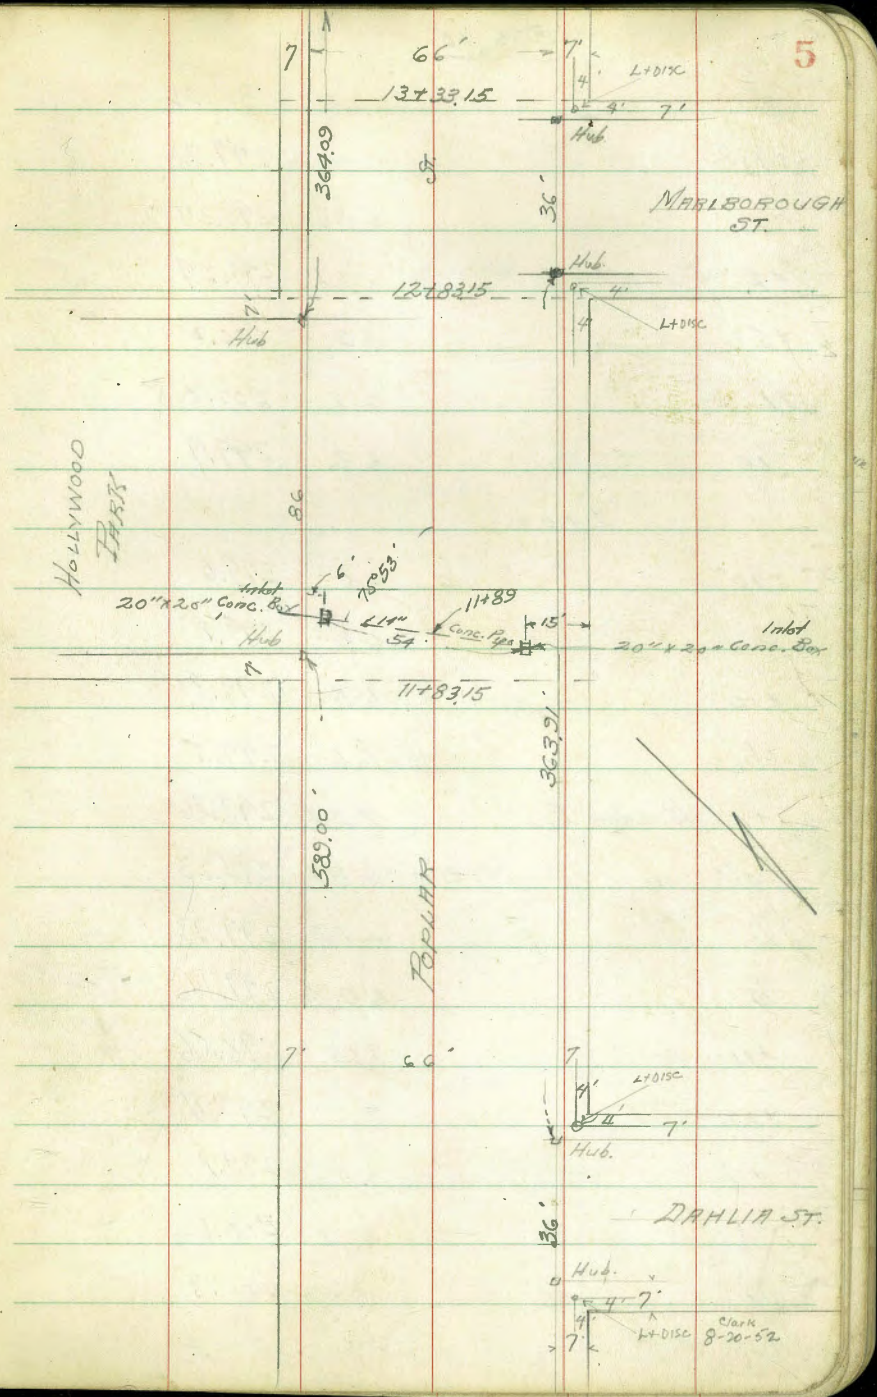 5
7 66' 7'
4' L+DISC
13+33.15
4' 7'
Hub
364.09
St.
36'
MARLBOROUGH
ST.
Hub.
12+83.15
4'
7'
Hub
4'
L+DISC
HOLLYWOOD
PARK
86
6'
75°53'
11+89
Inlet
20" x 20" Conc. Box
54
Conc. Pipe
15'
Inlet
20" x 20" Conc. Box
Hub
7'
11+83.15
363.91'
589.00'
POPLAR
7' 66' 7
L+DISC
4'
4' 7'
Hub.
36'
DAHLIA ST.
Hub.
4' 7'
4'
L+DISC
Clark
8-20-52
7'